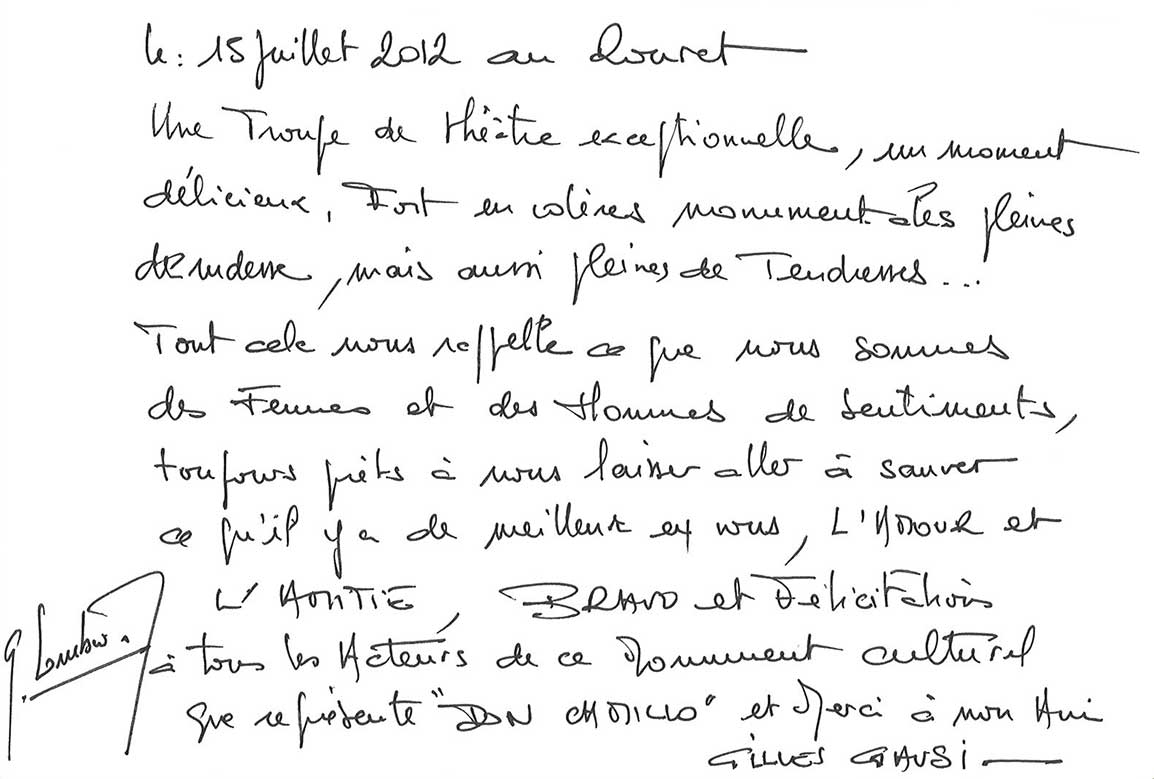 le : 15 Juillet 2012 au Rouret
Une Troupe de théâtre exceptionnelle, un moment
délicieux, Fort en colères monumentales pleines
de rudesse, mais aussi pleines de Tendresses...
Tout cela nous rappelle ce que nous sommes
des Femmes et des Hommes de Sentiments,
toujours prêts à nous laisser aller à sauver
ce qu'il y a de meilleur en nous, L'AMOUR et
L'AMITIÉ, BRAVO et Félicitations
à tous les Acteurs de ce Monument culturel
que représente "DON CAMILLO" et Merci à mon Ami
GILLES GAUSI